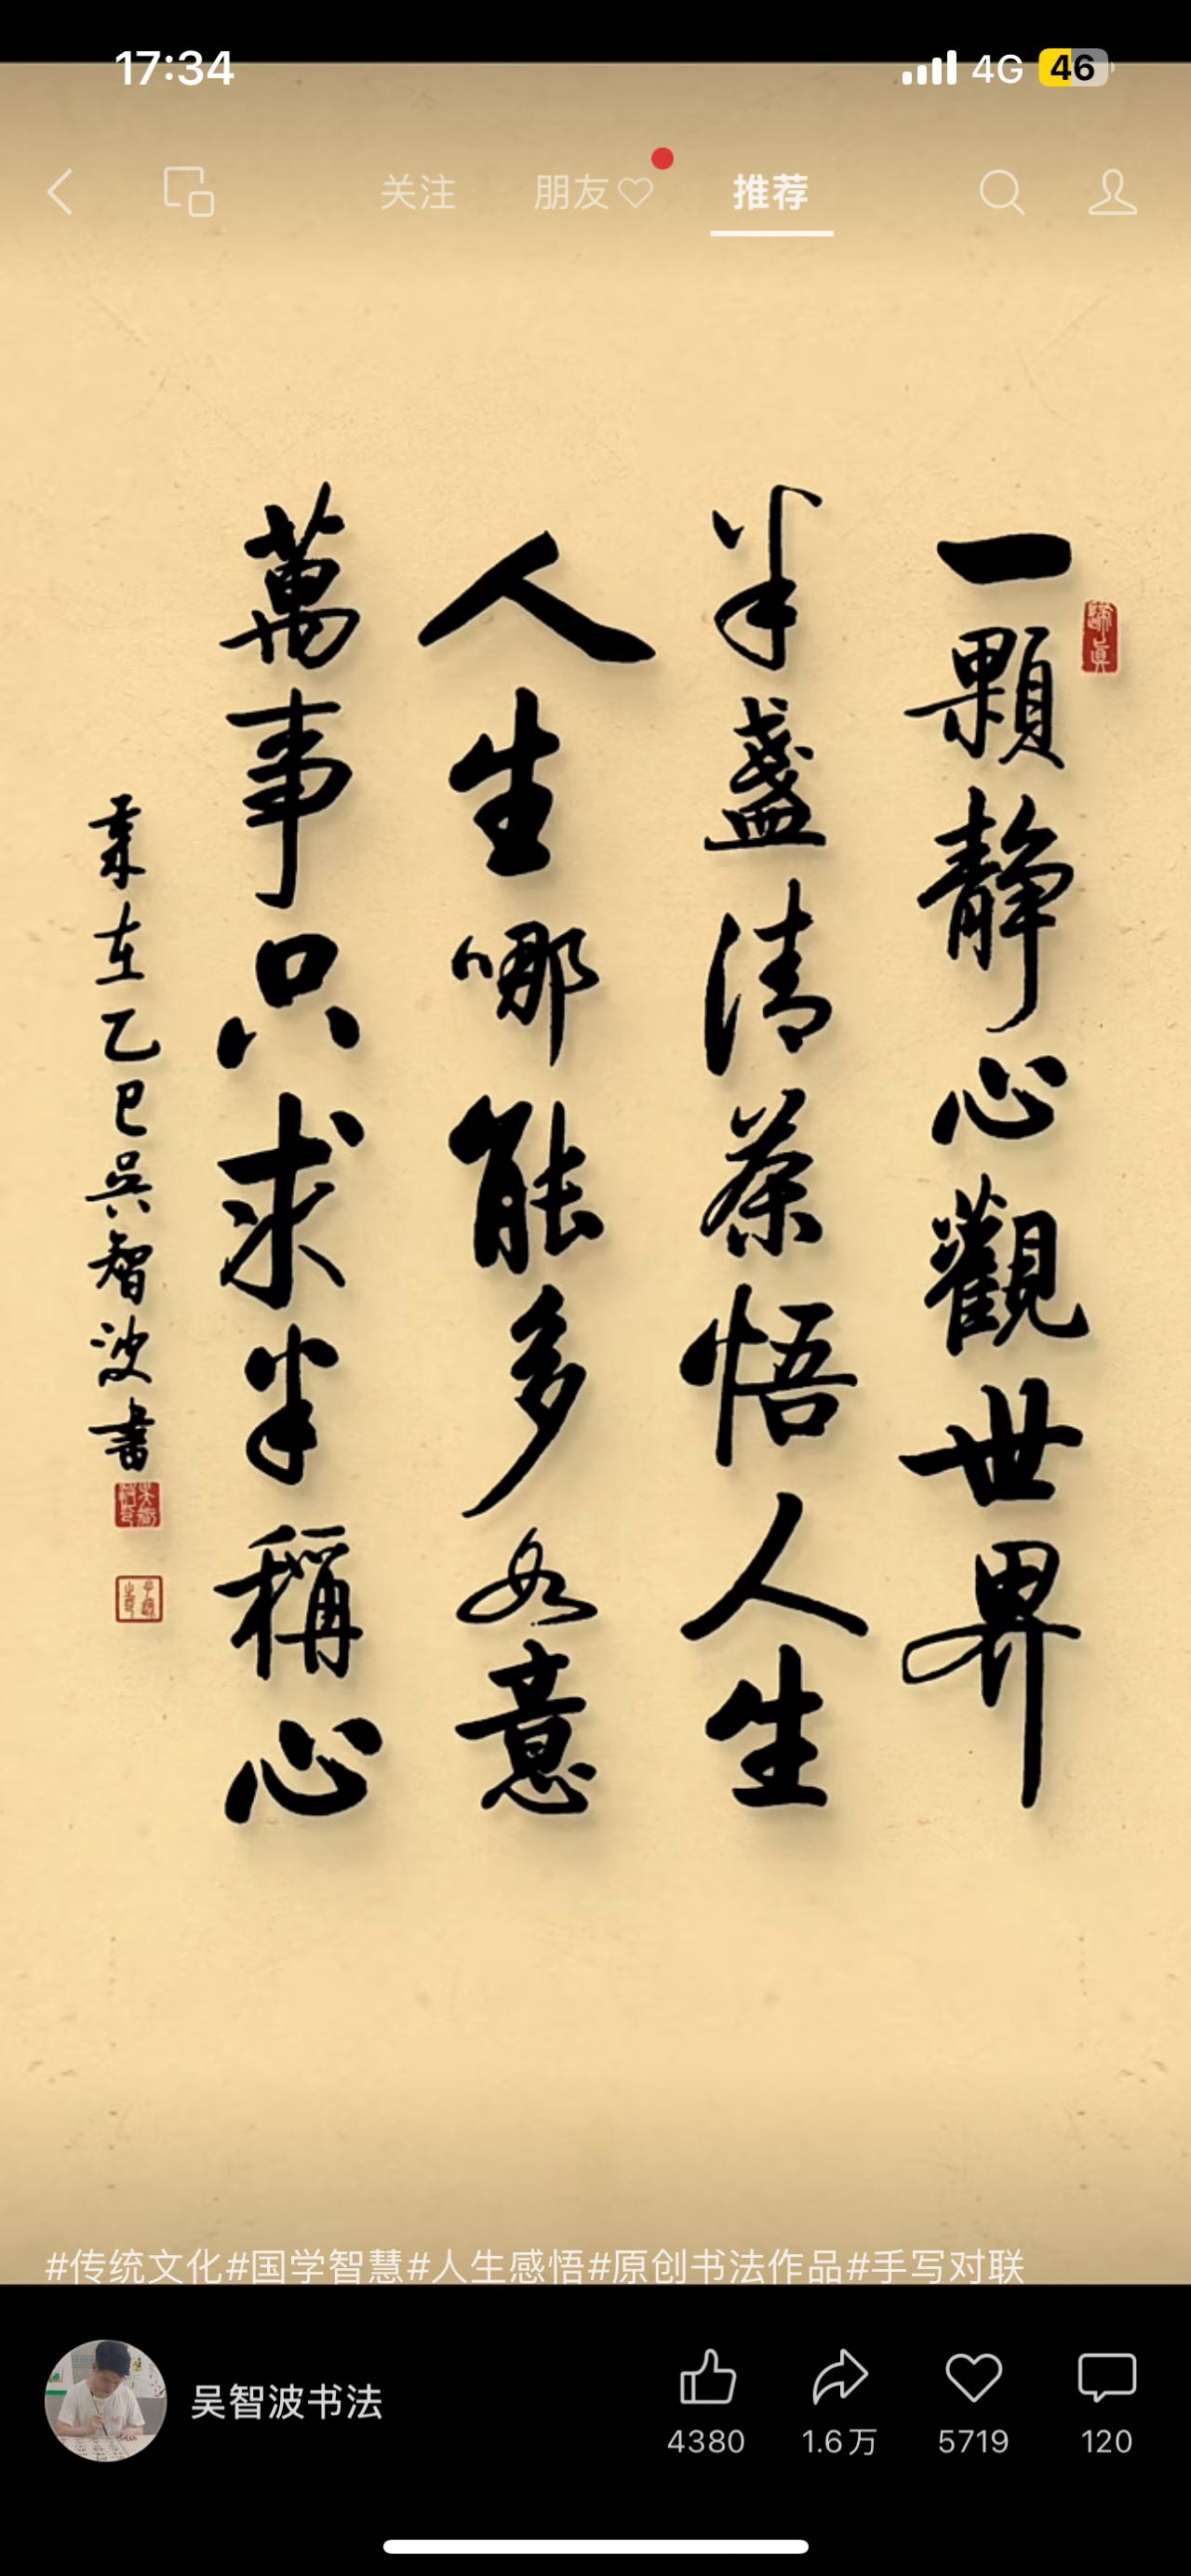 17:34
4G 46
关注 朋友 推荐
一顆静心觀世界
半盞清茶悟人生
人生哪能多如意
萬事只求半稱心
歲在乙巳吳智波書
#传统文化#国学智慧#人生感悟#原创书法作品#手写对联
吴智波书法
4380 1.6万 5719 120